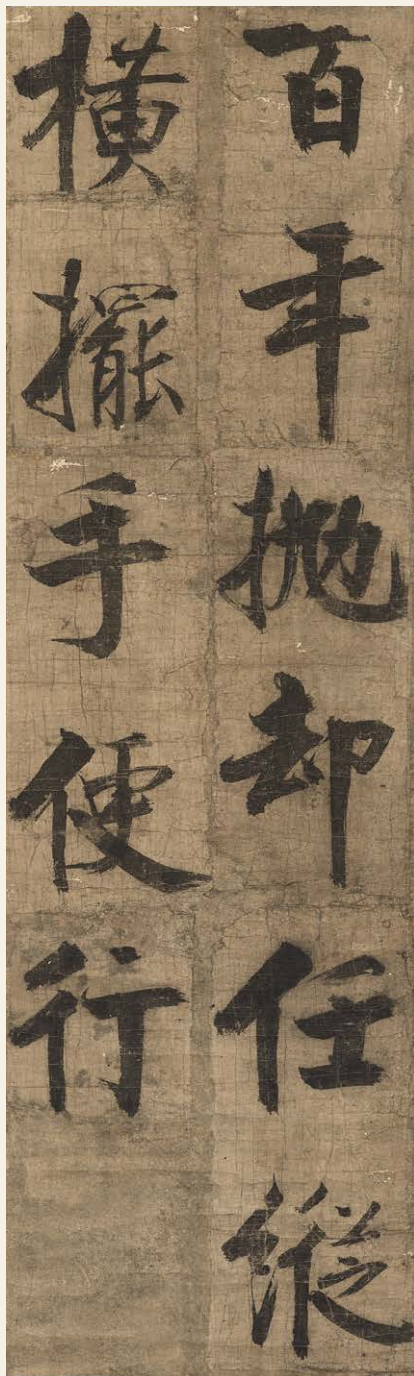 百年抛却任縱
橫擺手便行